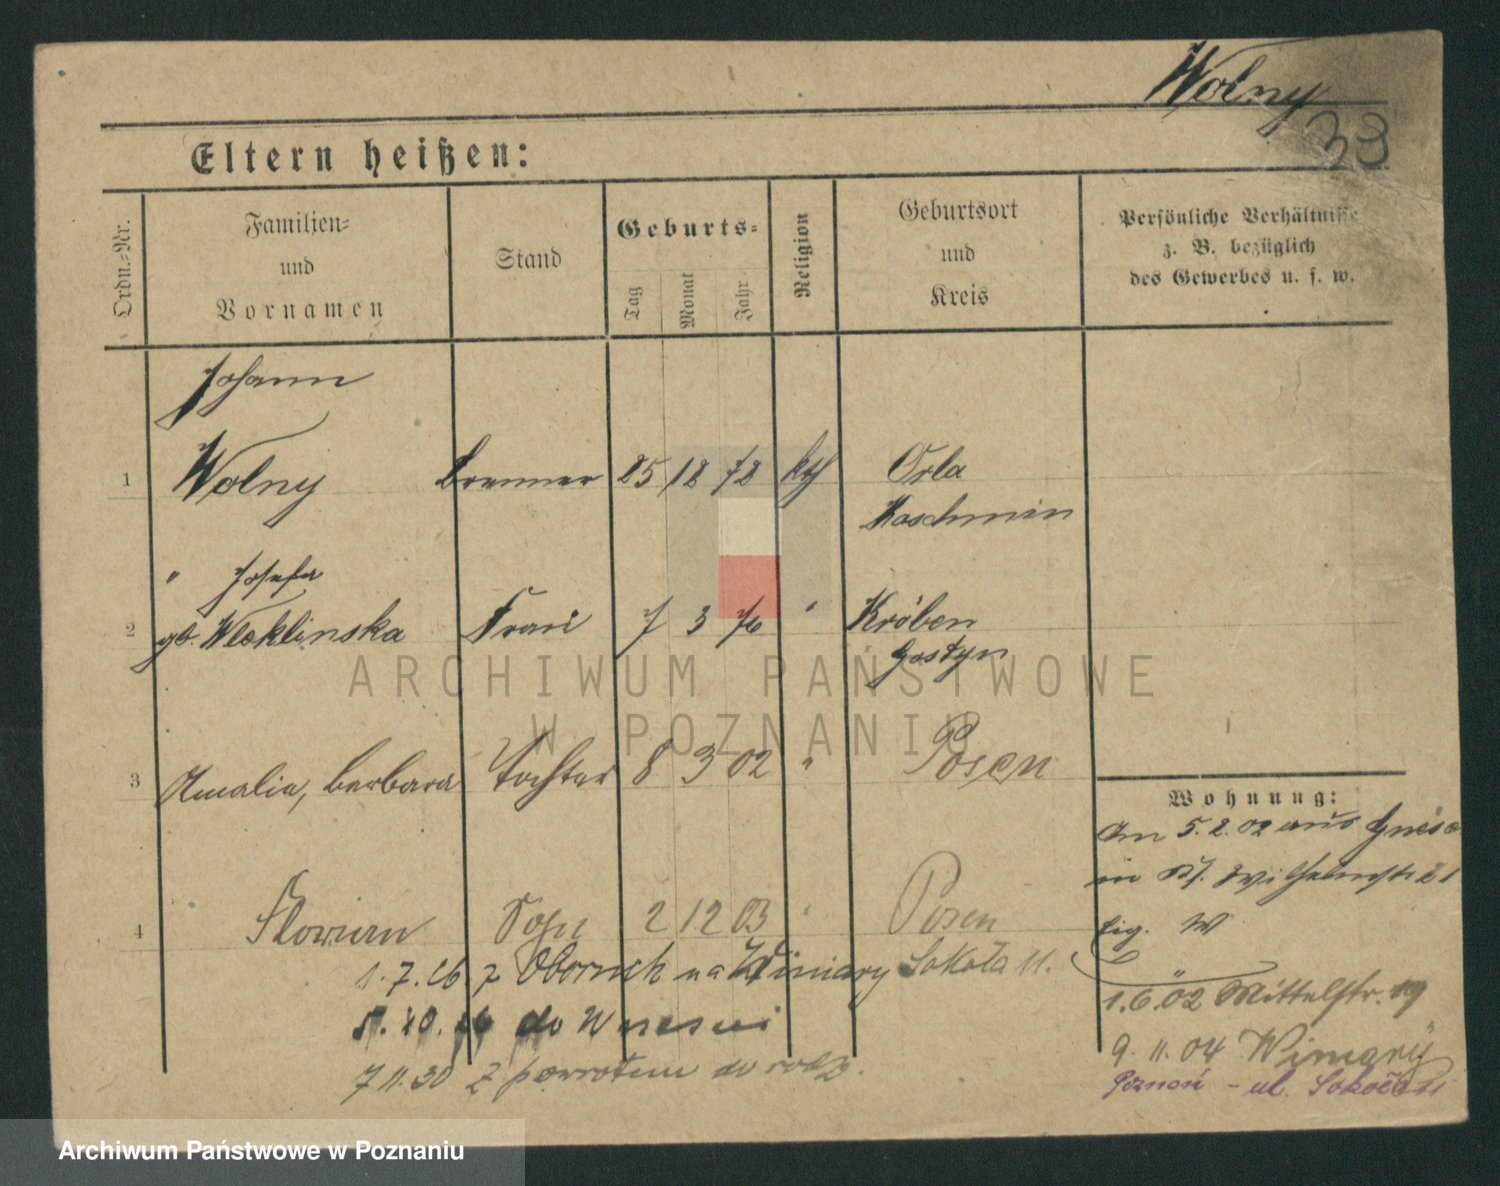 Wolny
33
Eltern heißen:
Ordn.-Nr.
Familien-
und
Vornamen
Stand
Geburts-
Tag
Monat
Jahr
Religion
Geburtsort
und
Kreis
Persönliche Verhältnisse
z. B. bezüglich
des Gewerbes u. s. w.
Johann
1 Wolny Brenner 25 12 72 kth Orla
Koschmin
" Josefa
2 gb. Weklinska Frau 7 3 76 " Kröben
Gostyn
ARCHIWUM PAŃSTWOWE
W POZNANIU
3 Amalia, Barbara Tochter 8 3 02 " Posen
Wohnung:
Am 5. 2. 02 aus Gnese
in Wilhelmstr 21
4 Florian Sohn 2 12 03 " Posen
Zig. W
1. 7. 26. z Obornik na Winiary Sokoła 11.
1. 6. 02 Mittelstr. 19
5. 10. 26 do Wrzesni
9. 11. 04 Winiary
7 11. 30 z powrotem do rodz.
Poznań - ul. Sokoła 11
Archiwum Państwowe w Poznaniu